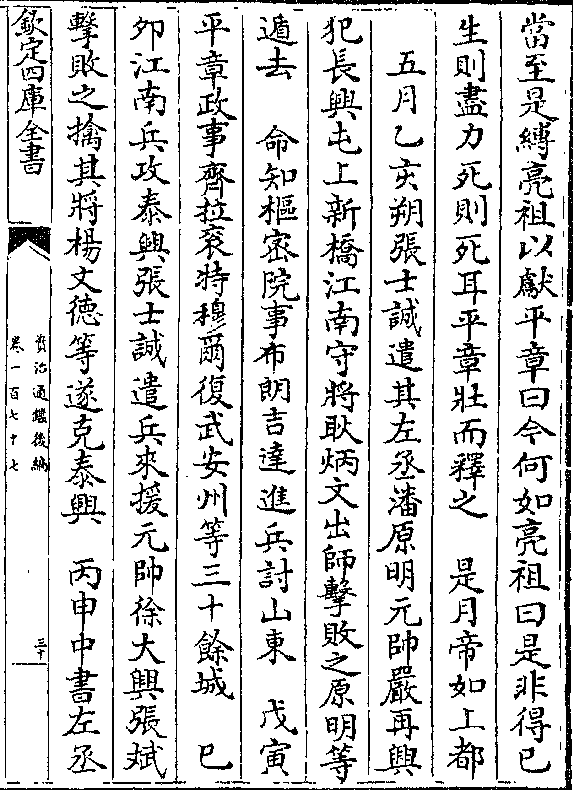 當至是縛亮祖以獻平章曰今何如亮祖曰是非得已
生則盡力死則死耳平章壯而釋之　是月帝如上都
五月乙亥朔張士誠遣其左丞潘原明元帥嚴再興
犯長興屯上新橋江南守將耿炳文出師擊敗之原明等
遁去　命知樞密院事布朗吉達進兵討山東　戊寅
平章政事齊拉衮特穆爾復武安州等三十餘城　己
卯江南兵攻泰興張士誠遣兵來援元帥徐大興張斌
擊敗之擒其將楊文德等遂克泰興　丙申中書左丞
欽定四庫全書
資治通鑑後編
卷一百七十七
三十